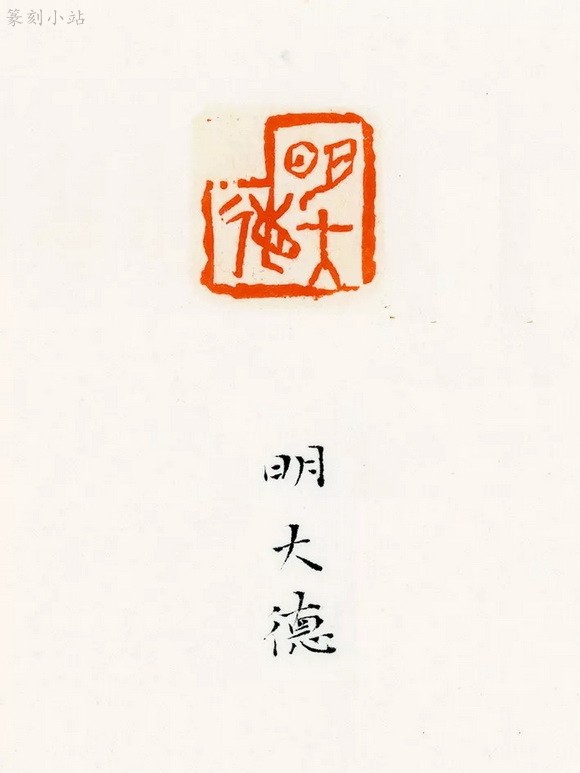 篆刻小站
明大德
明
大
德